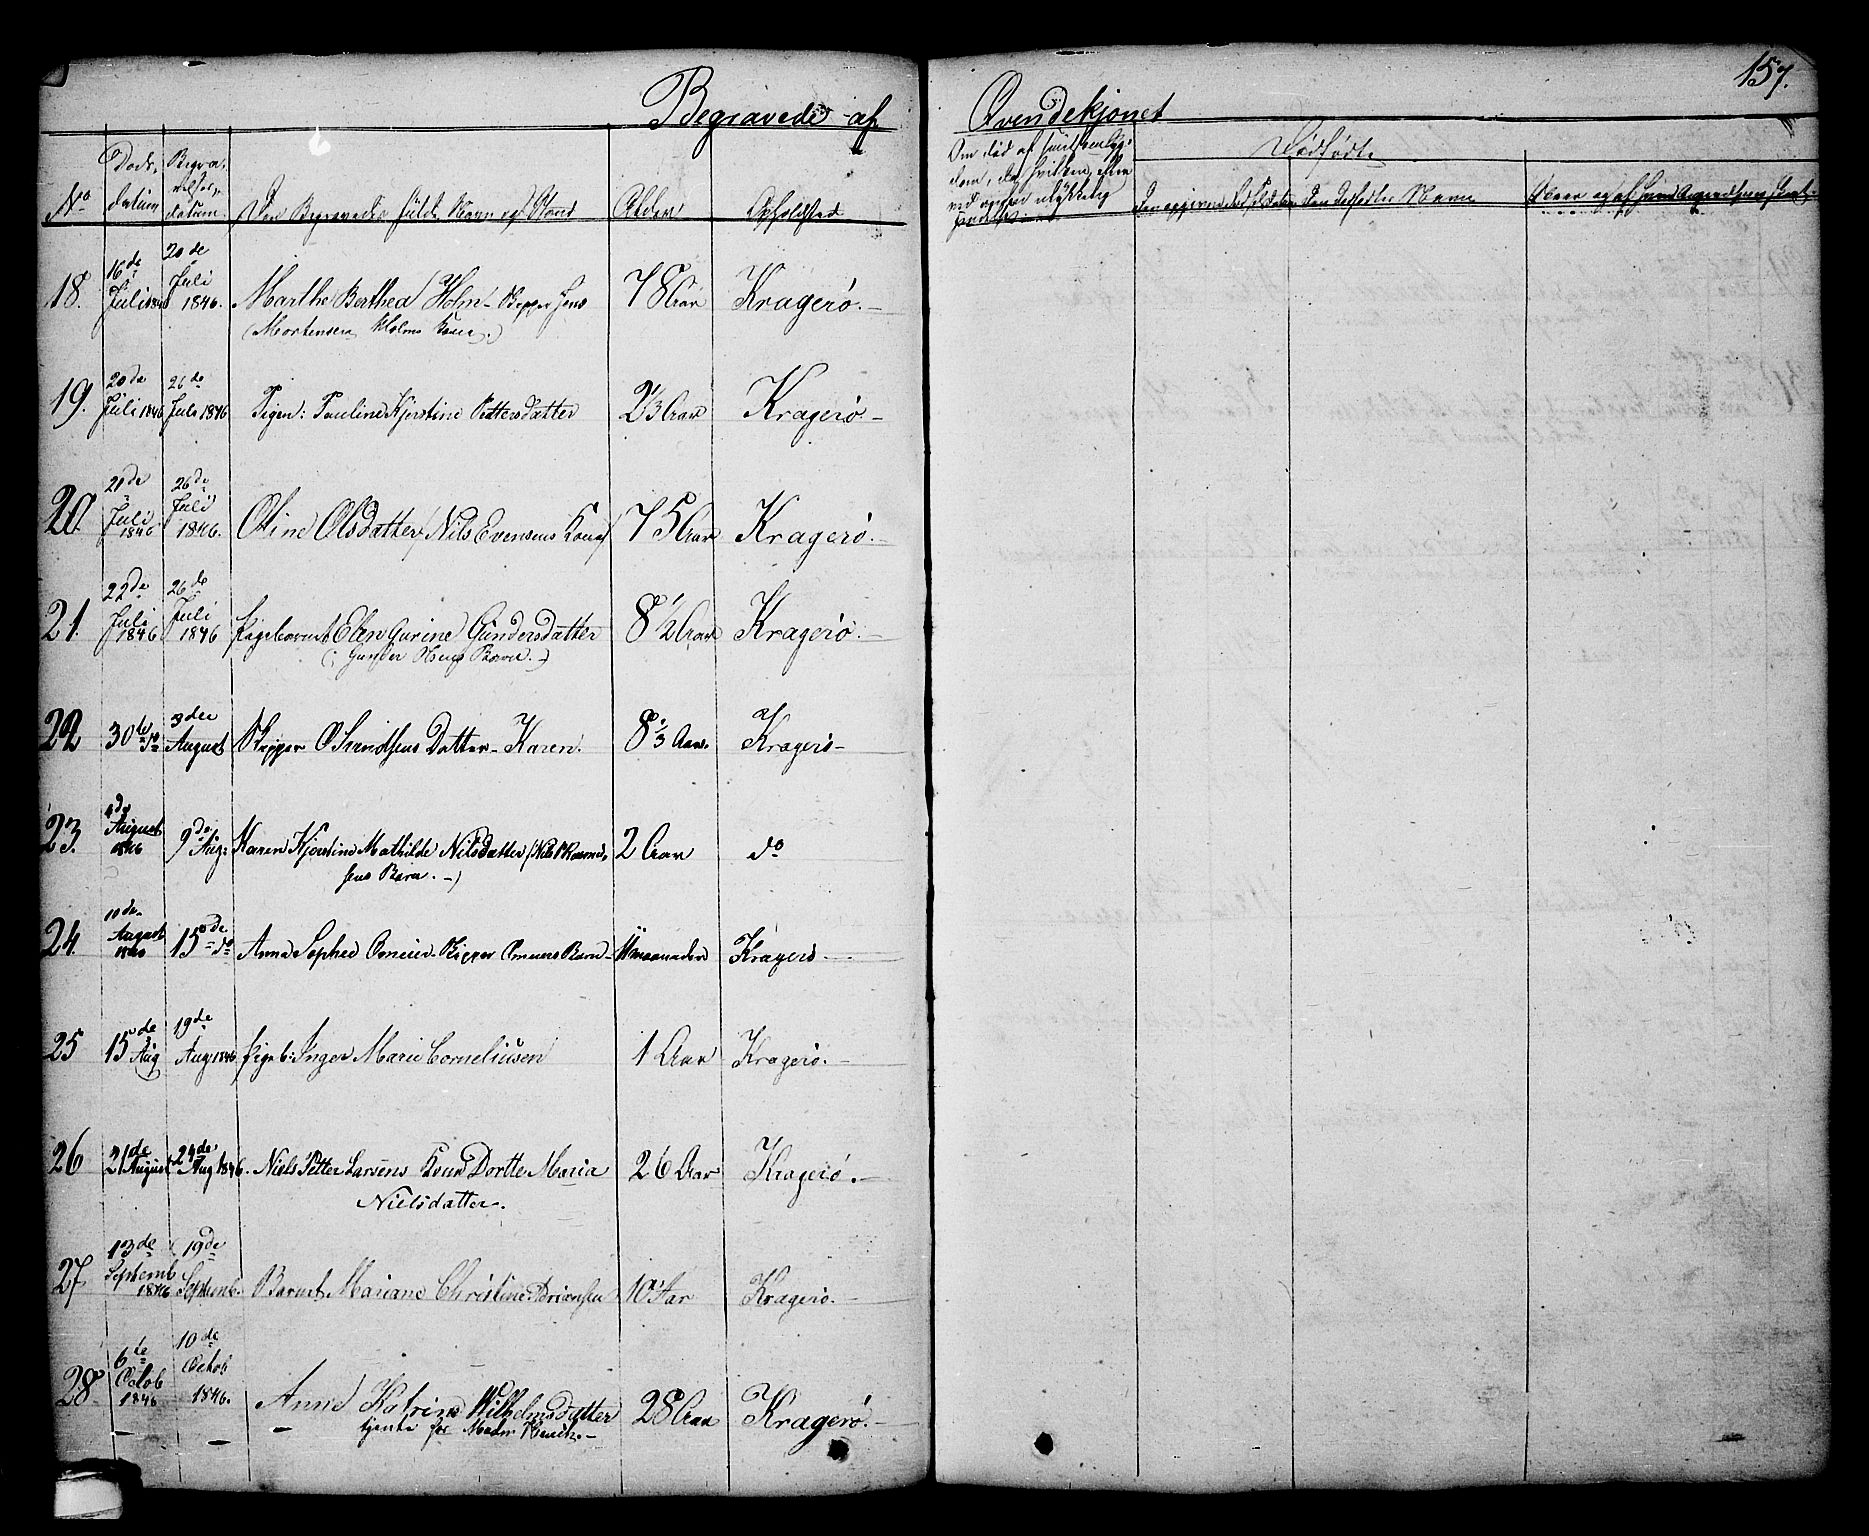 157.
Begravede af
Qvendekjønet
No
Døds-
datum
Begra-
velses-
datum
Den Begravedes fulde Navn og Stand
Alder
Opholdsted
Om død af
Dødfødte
18.
16de
Juli 1846
20de
Juli
1846.
Marthe Berthea Holm - Skipper Jens
(Mortensen Holms Kone.)
78 Aar
Kragerø. -
19.
20de
Juli 1846
26de
Juli 1846
Pigen: Pauline Kjerstine Pettersdatter
2 1/3 Aar
Kragerø. -
20.
21de
Juli
1846
26de
Juli
1846.
Oline Olsdatter / Nils Evensens Kone /
75 Aar
Kragerø. -
21.
22de
Juli
1846
26de
Juli
1846
Pigebarnet Elen Gurine Gundersdatter
(: Gunder Barn. -)
8 1/2 Aar
Kragerø. -
22
30te do
3die
August
Skipper Datter - Karen.
8 1/3 Aar.
Kragerø -
23.
4de
August
1846
9de Aug:
Karen Kjerstine Mathilde Nilsdatter / Nils
sens Barn. -)
2 Aar
do
24.
10de
August
1846
15de do
Anna Sophie Skipper Barn -
11 maaneder
Kragerø -
25
15de
Aug
19de
Aug 1846
Pigeb: Inger Marie Corneliusen
1 Aar
Kragerø. -
26
21de
August
24de
Aug 1846.
Niels Petter Larsens Kone Dortte Maria
Nielsdatter.
26 Aar
Kragerø. -
27
13de
Septemb
1846
19de
Septemb.
Barnet Mariane Christine
10 Aar
Kragerø. -
28
6de
Octob
1846
10de
Octob
1846.
Anne Katrine Wilhelmsdatter
tjente for Madm
28 Aar
Kragerø. -